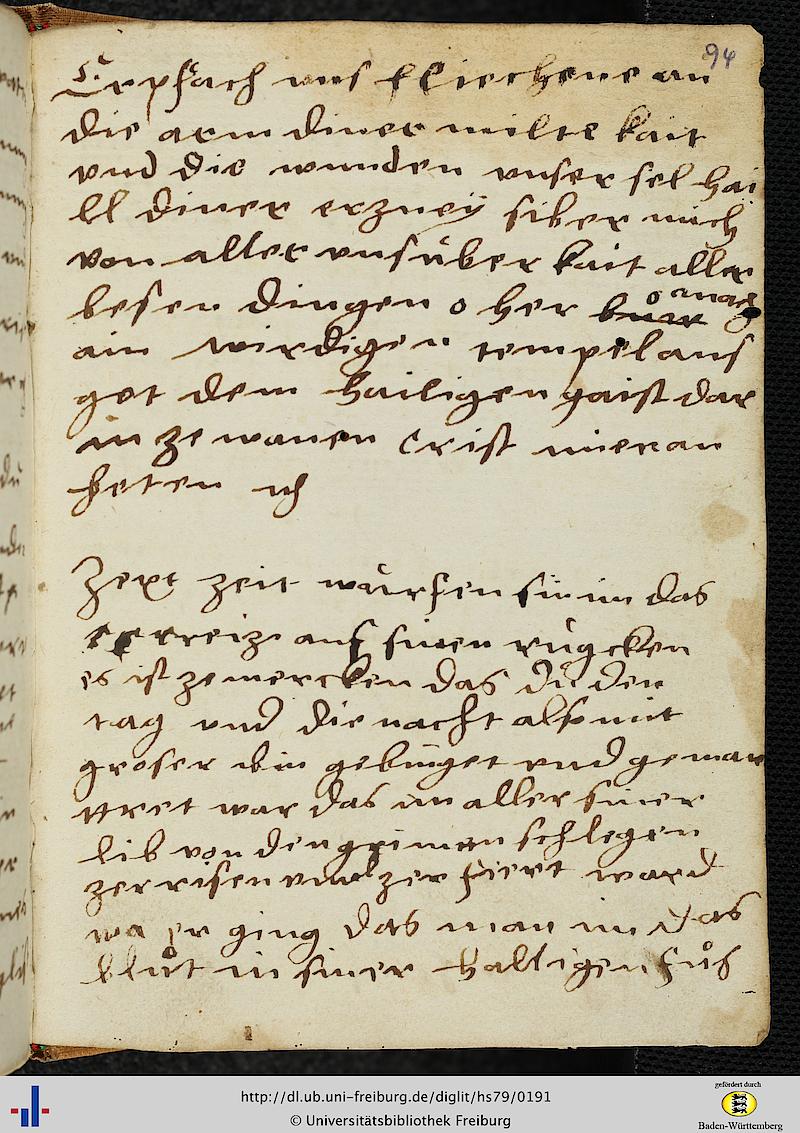 94
Erpfach uns fliechene an
die arm diner milte kait
vnd die wunden vnser sel hai
ll diner erzneÿ siber mich
von aller vnsüber kait aller
besen dingen o her mach
ain wirdigen tempel auf
got dem hailigen gaist dar
in ze wanen Crist mier an
beten ich
Zext zeit würfen sii im das
creiz auf sinen rügcken
es ist ze mercken das du den
tag vnd die nacht also mit
groser bin gebinget vnd gemar
ttret war das im aller siner
lib von den grimen schlegen
zerrisen vnd zer fiert ward
wa er ging das man im das
blůt in siner halligen fůs
http://dl.ub.uni-freiburg.de/diglit/hs79/0191
© Universitätsbibliothek Freiburg
gefördert durch
Baden-Württemberg